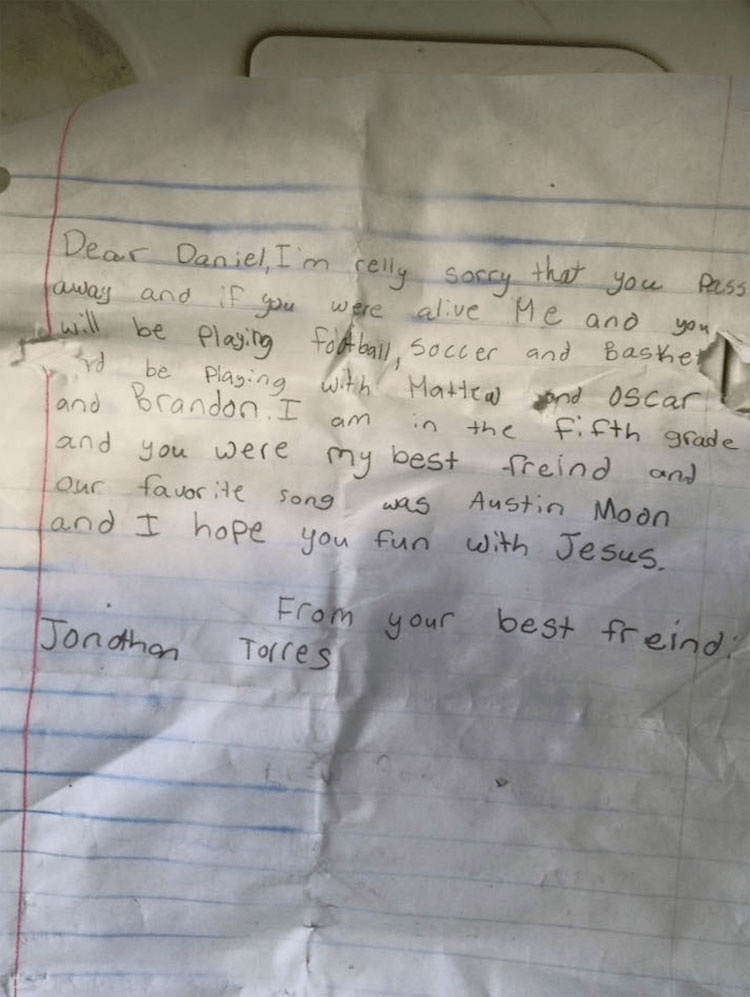 Dear Daniel, I'm relly sorry that you pass
away and if you were alive Me and you
will be playing football, soccer and Basket
be playing with Mattew and Oscar
and Brandon. I am in the fifth grade
and you were my best freind and
our favorite song was Austin Moon
and I hope you fun with Jesus.
From your best freind.
Jonathan Torres